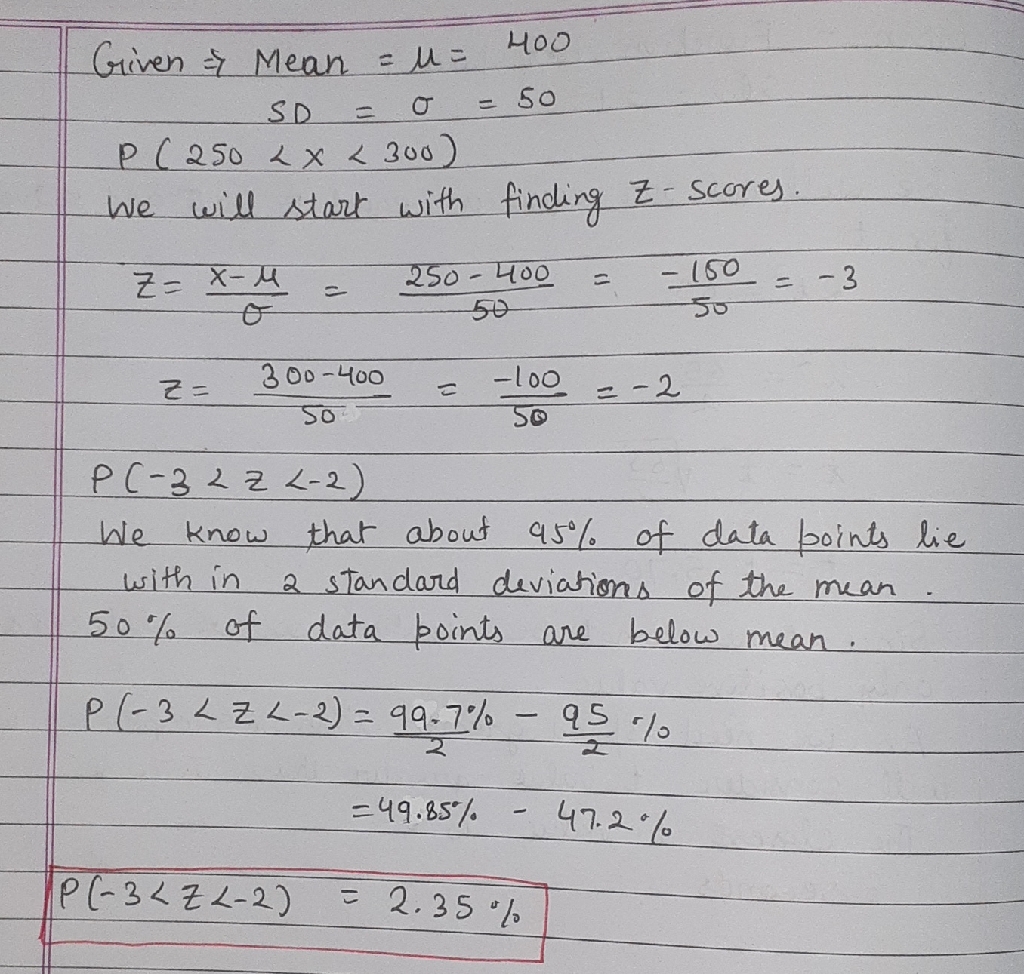 Given ⇒ Mean = μ = 400
SD = σ = 50
P(250 < x < 300)
We will start with finding Z-scores.
Z = x-μ/σ = 250-400/50 = -150/50 = -3
Z = 300-400/50 = -100/50 = -2
P(-3 < Z <-2)
We know that about 95% of data points lie
with in 2 standard deviations of the mean.
50% of data points are below mean.
P(-3 < Z <-2) = 99.7%/2 - 95/2 %
=49.85% - 47.2%
P(-3<Z<-2) = 2.35%